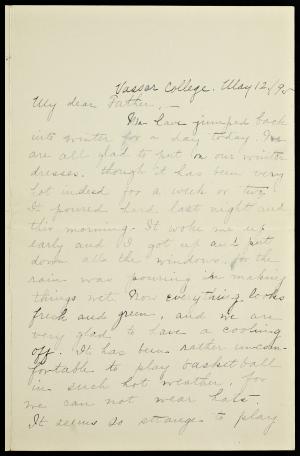 Vassar College. May 12/95
My dear Father,—
We have jumped back
into winter for a day today. We
are all glad to put on our winter
dresses, though it has been very
hot indeed for a week or two.
It poured hard last night and
this morning. It woke me up
early and I got up and put
down all the windows, for the
rain was pouring in making
things wet. Now everything looks
fresh and green, and we are
very glad to have a cooling
off. It has been rather uncom-
fortable to play basket ball
in such hot weather, for
we can not wear hats.
It seems so strange to play